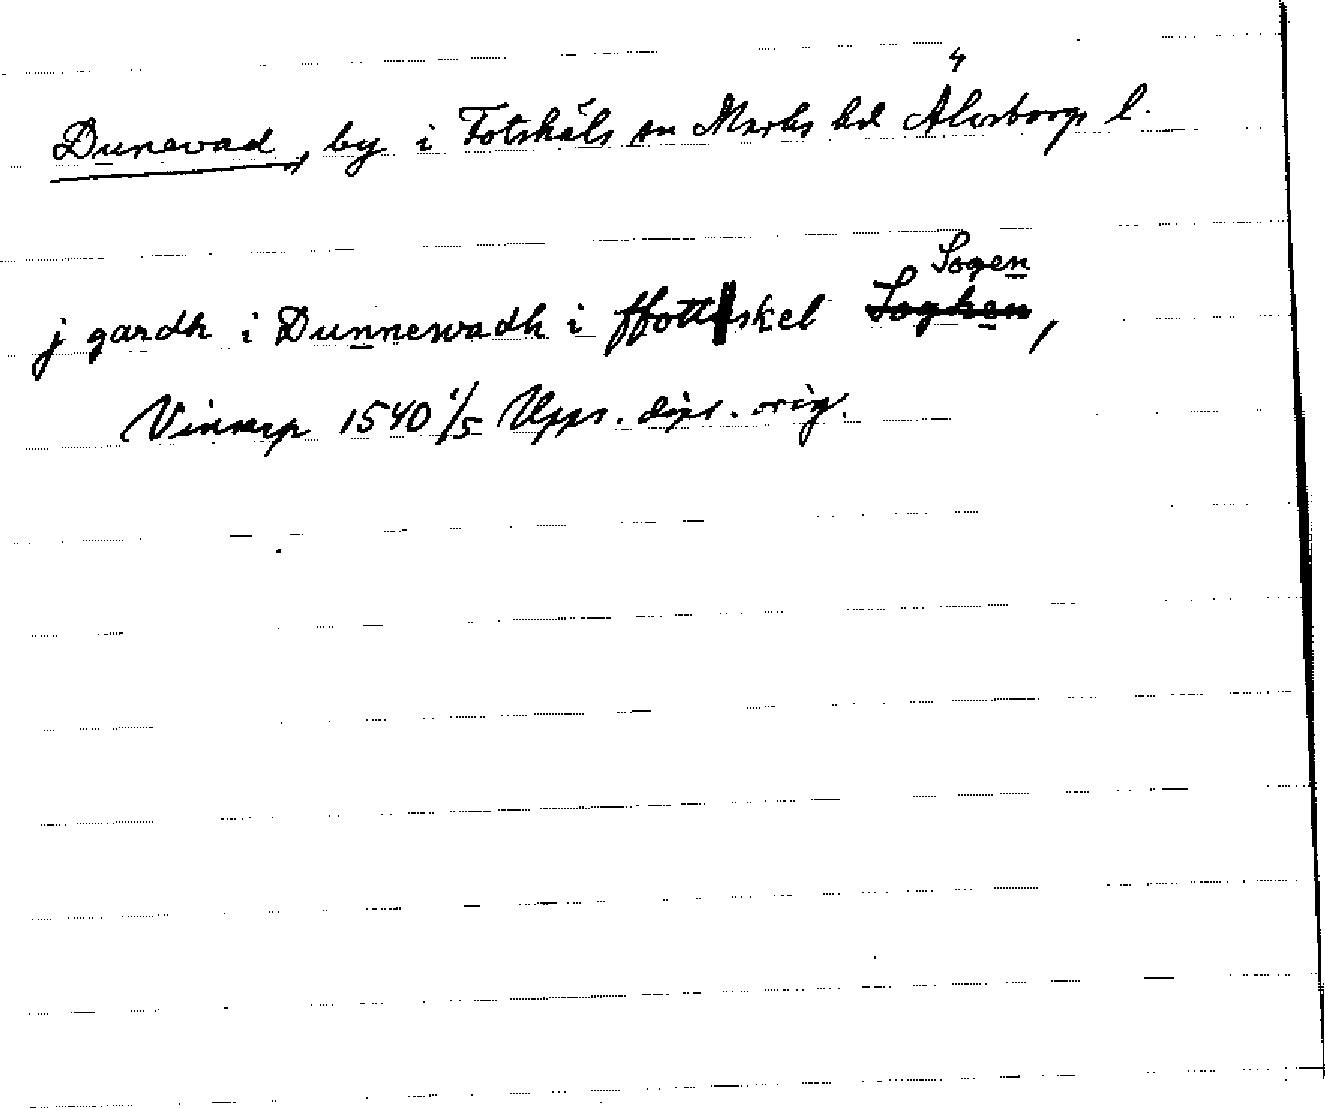 Dunevad, by i Fotskäls sn Marks hd Älvsborgs l.
Sogen
j gardh i Dunnewadh i ffottskel Soghen,
Vinarp 1540 1/5 Upps. dipl. orig.